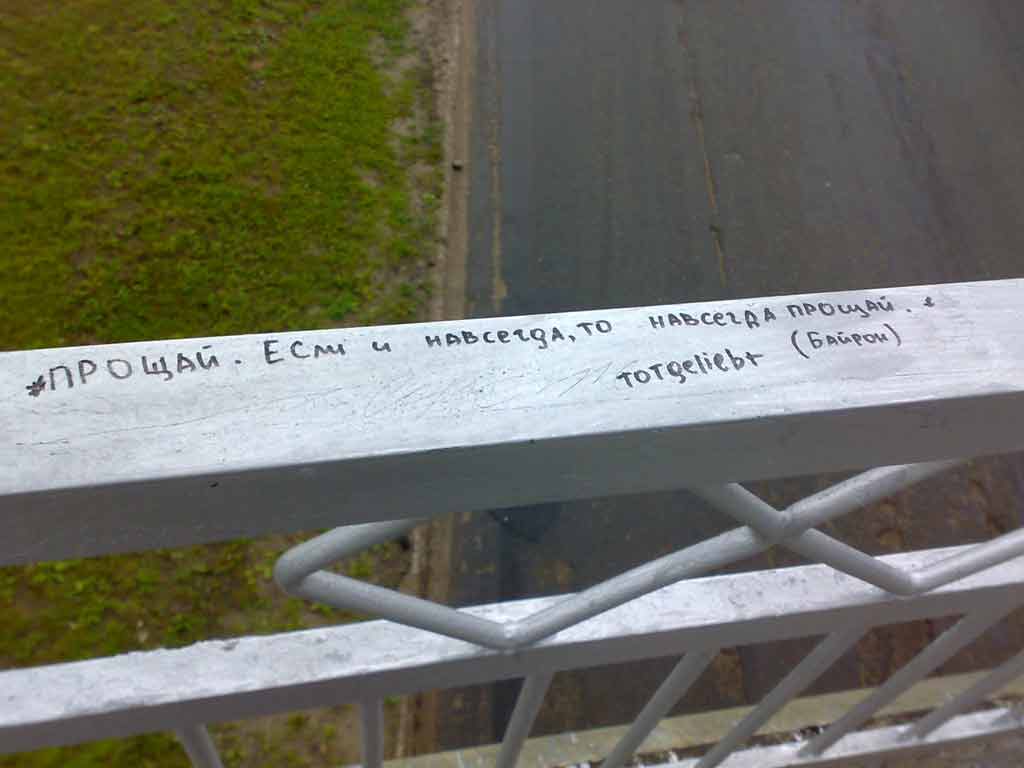 *ПРОЩАЙ. ЕСЛИ И НАВСЕГДА, ТО НАВСЕГДА ПРОЩАЙ.*
(БАЙРОН)
тотgeliebt